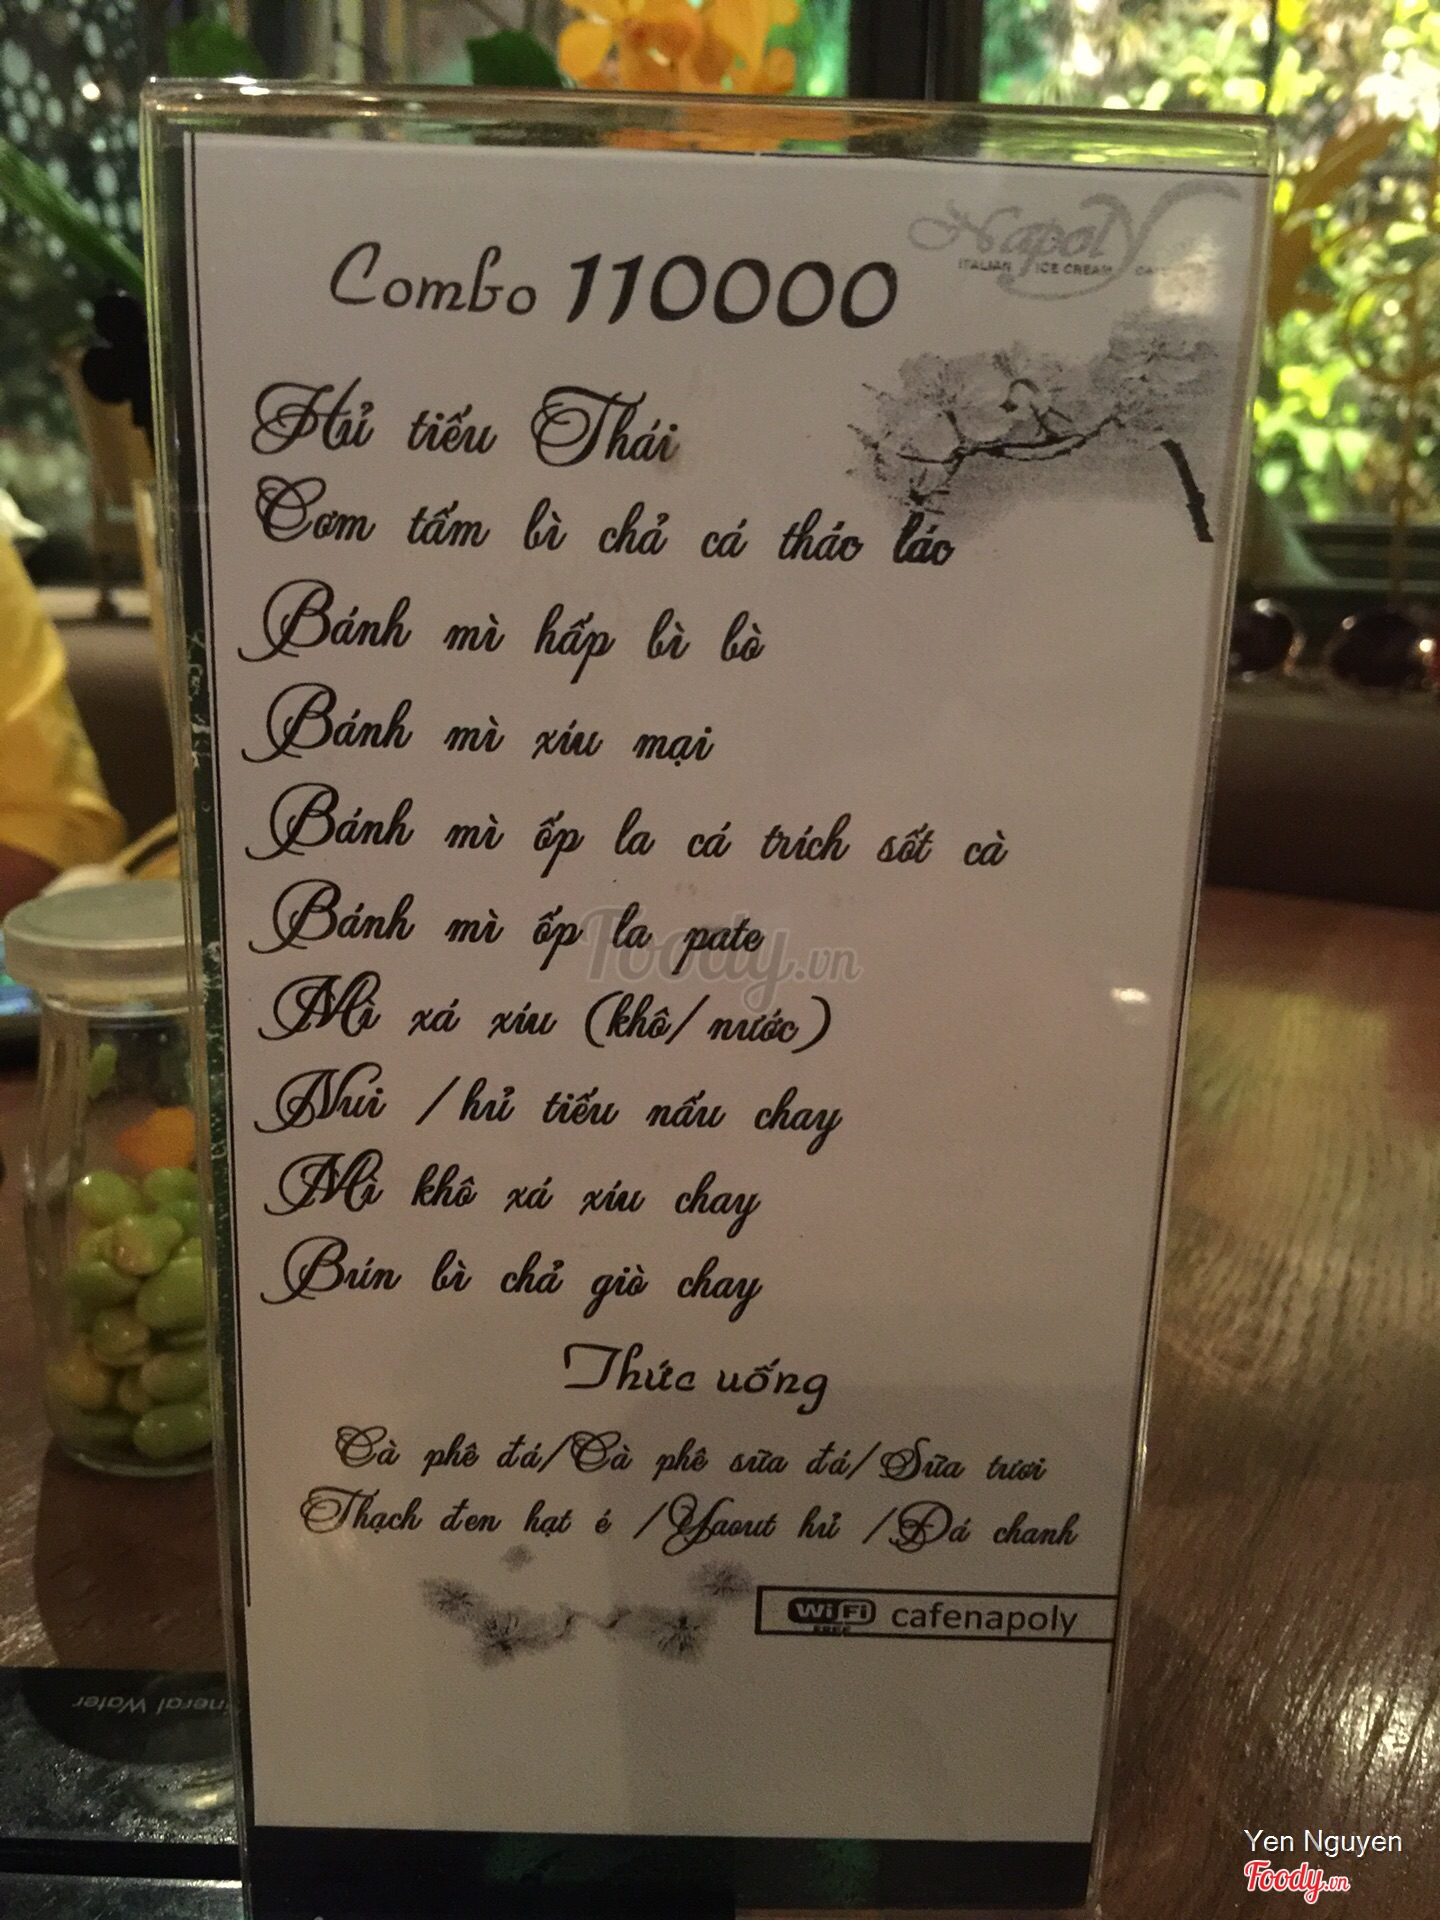 Napoly
ITALIAN ICE CREAM
Combo 110000
Hủ tiếu Thái
Cơm tấm bì chả cá tháo láo
Bánh mì hấp bì bò
Bánh mì xíu mại
Bánh mì ốp la cá trích sốt cà
Bánh mì ốp la pate
Foody.vn
Mì xá xíu (khô/nước)
Nui /hủ tiếu nấu chay
Mì khô xá xíu chay
Bún bì chả giò chay
Thức uống
Cà phê đá/Cà phê sữa đá/Sữa tươi
Thạch đen hạt é /Yaout hủ /Đá chanh
WiFi FREE cafenapoly
neral Water
Yen Nguyen
Foody.vn